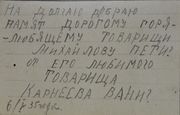 НА ДОЛГАЮ ДОБРАЮ
ПАМЯТ ДОРОГОМУ ГОРЯ-
-ЛЮБЯЩЕМУ ТОВАРИЩИ
МИХАЙЛОВУ ПЕТИ?
ОТ ЕГО ЛЮБИМОГО
ТОВАРИЩА
КАРНЕЕВА ВАНИ?